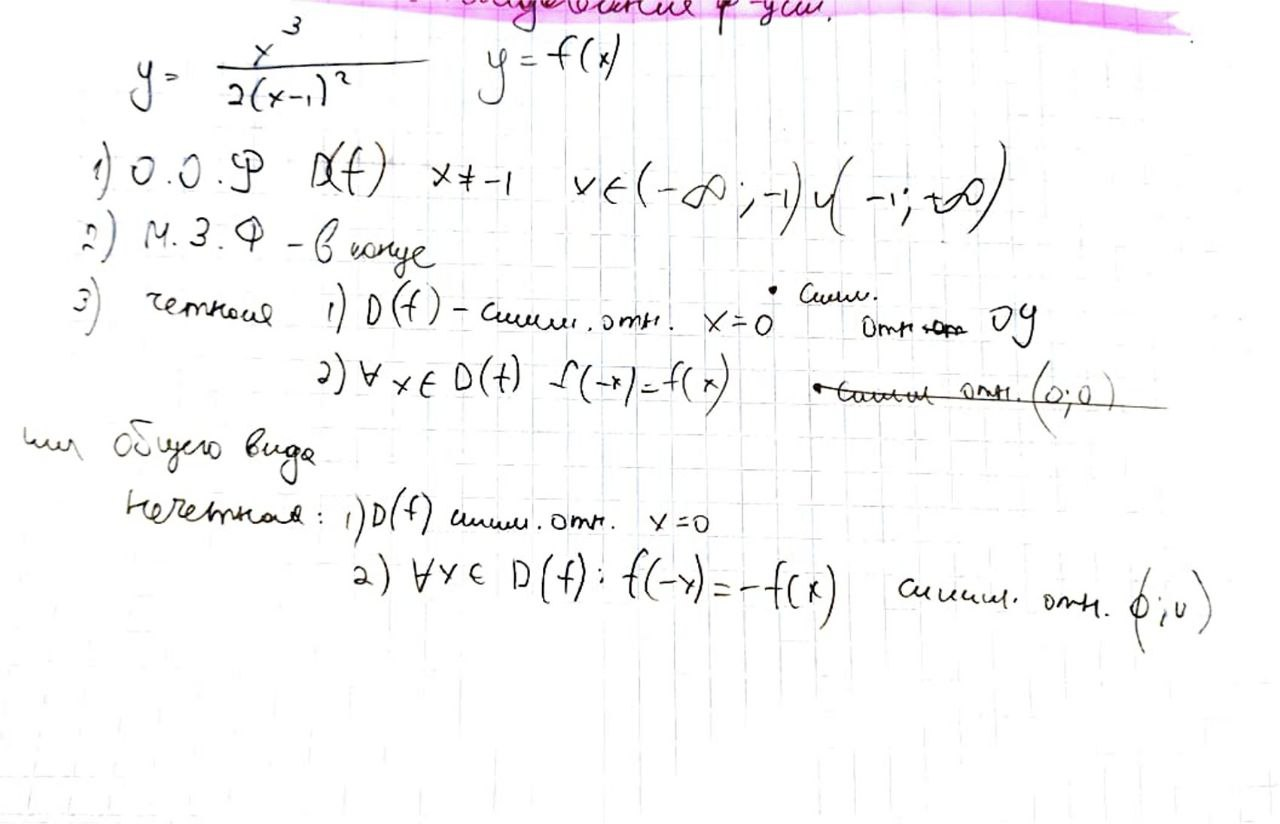 ф-ции.
y = x³ / 2(x-1)² y = f(x)
1) О.О.Ф D(f) x ≠ -1 x ∈ (-∞; -1) ∪ (-1; +∞)
2) М.З.Ф - в конце
3) четная 1) D(f) - симм. отн. x = 0 • симм. отн. OY
2) ∀ x ∈ D(f) f(-x) = f(x) • симм отн. (0;0)
или общего вида
Нечетная: 1) D(f) симм. отн. x = 0
2) ∀x ∈ D(f): f(-x) = -f(x) симм. отн. (0;0)